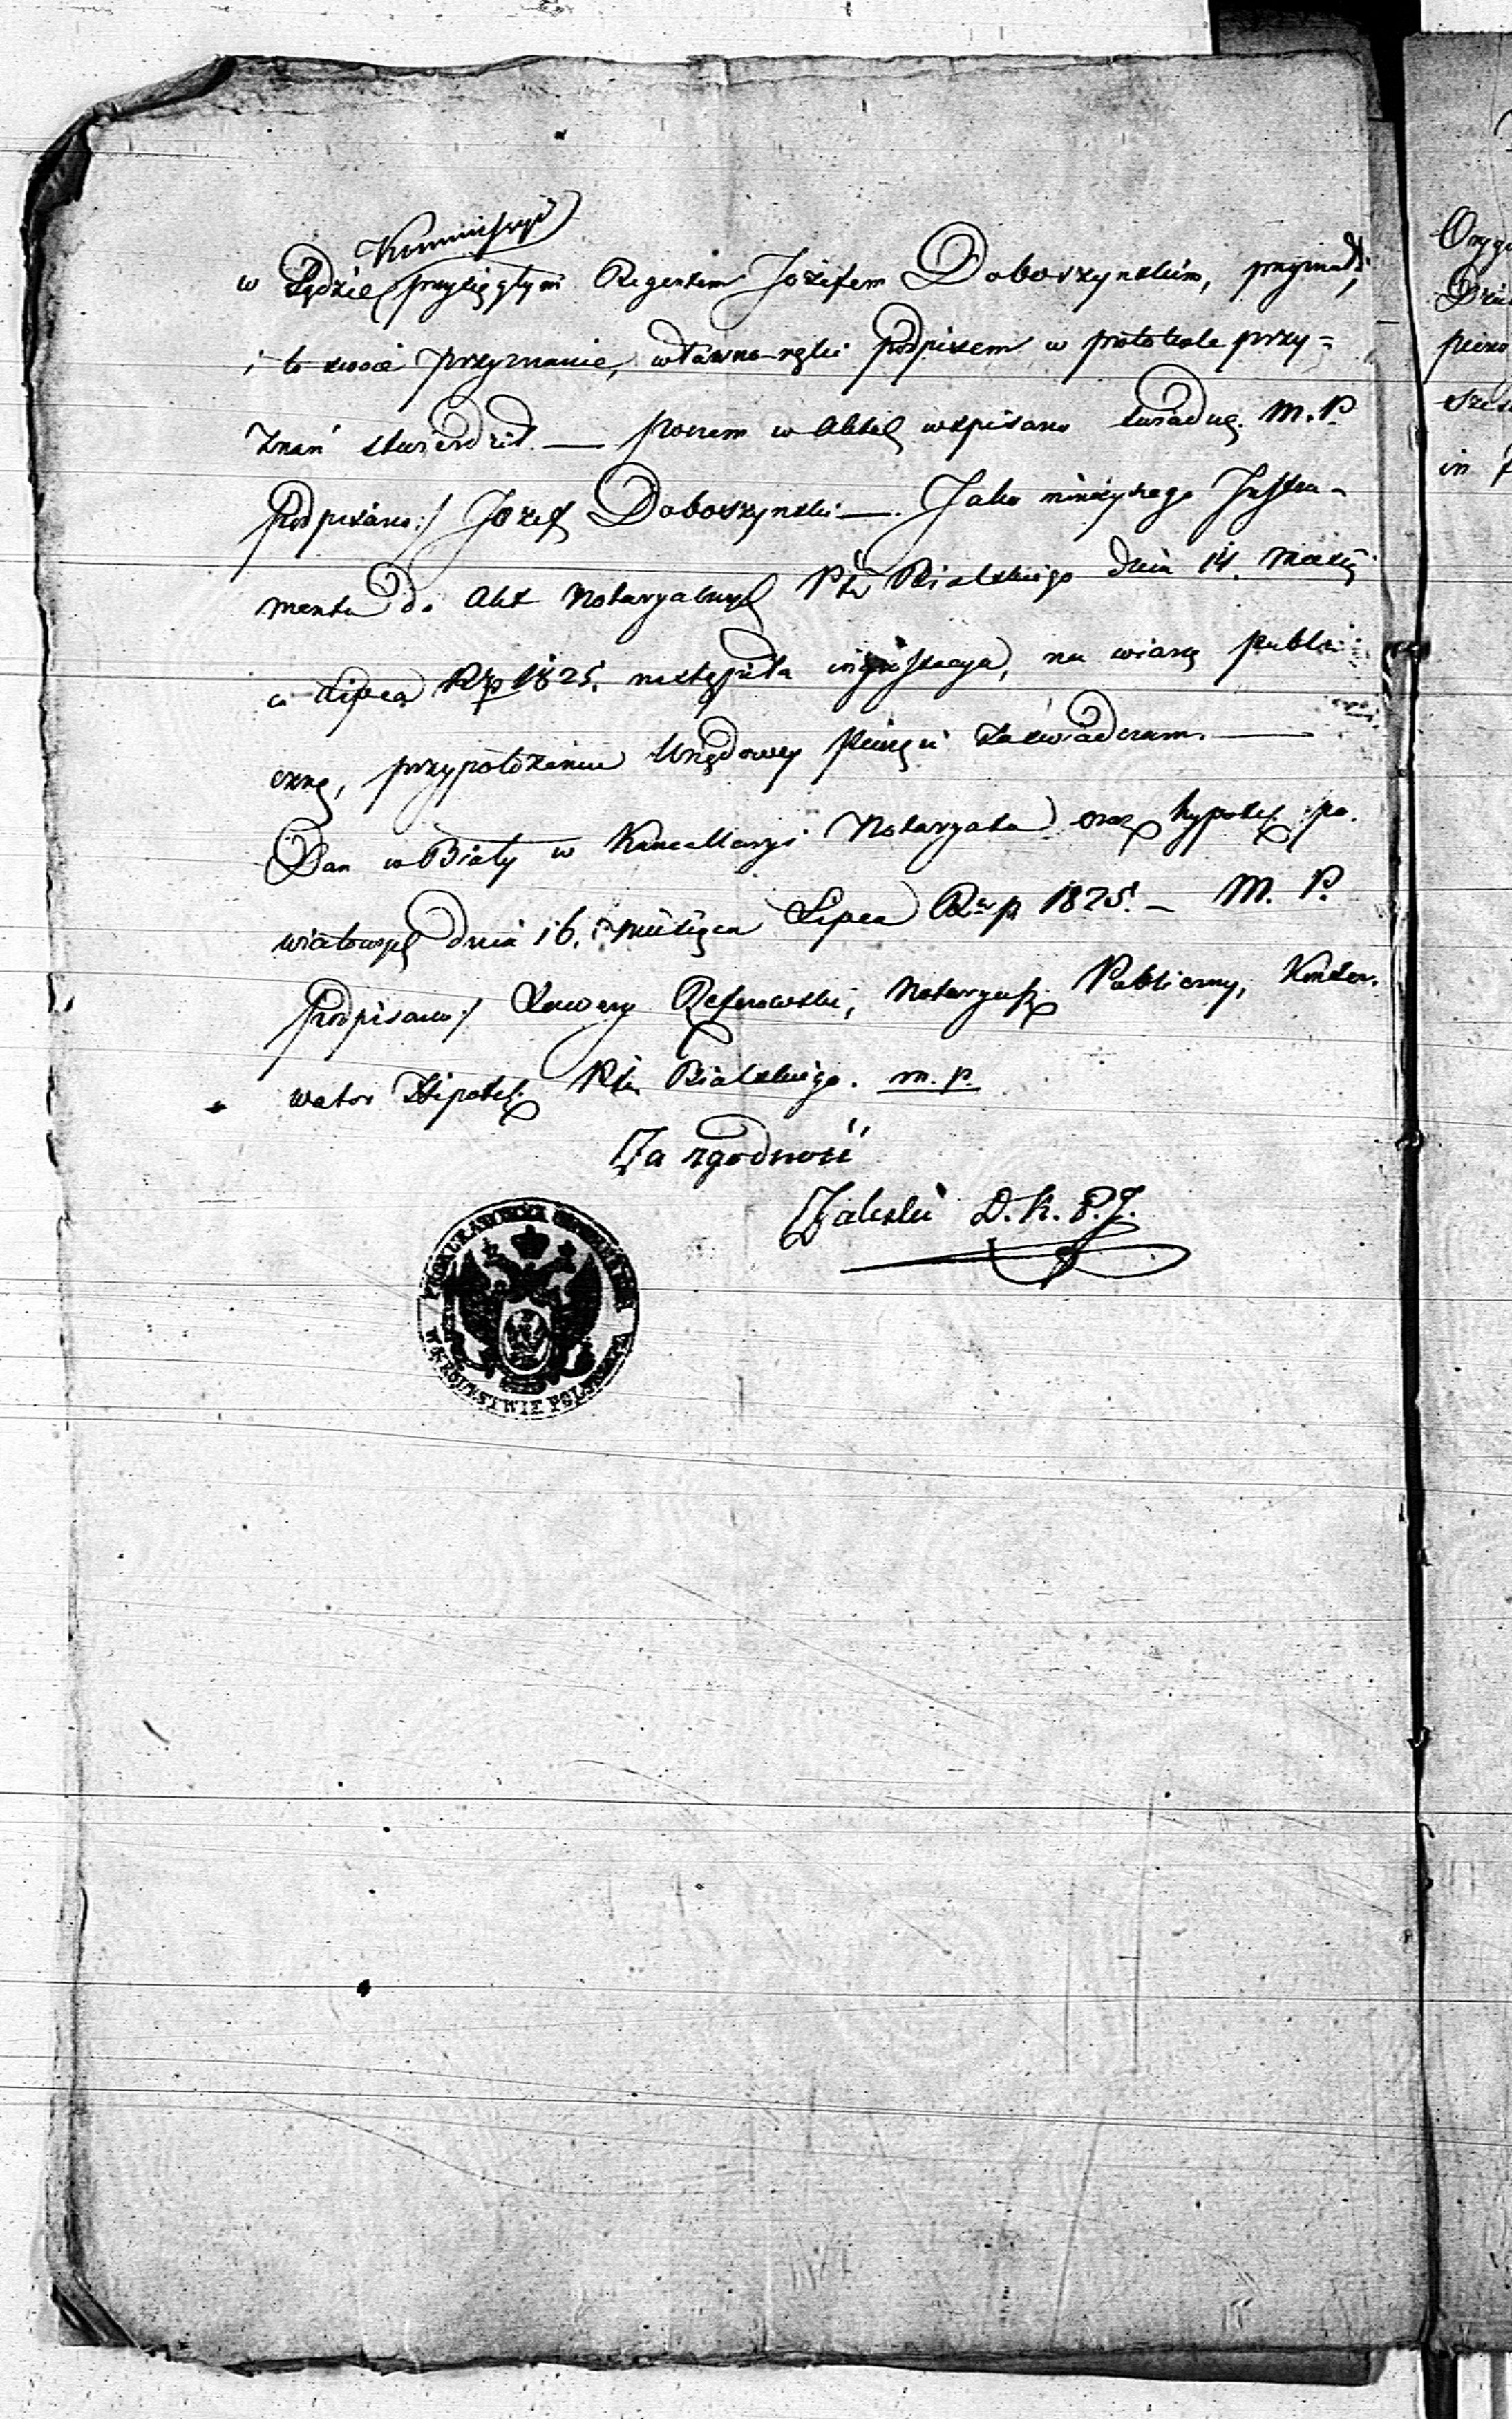 Kommissyi
w Sądzie przysięgłym Regentem Józefem Doboszynskim, przyznał,
i to swoie przyznanie, własno-ręki podpisem w protokole przy=
znań stwierdził. — poczem w Aktach wspisano świadczę. M.P.
podpisano:/ Jozef Doboszynski —. Jako ninieyszego Instru-
mentu do Akt Notaryalnych Ptu Bialskiego dnia 14. 
Lipca Rp 1825. nastąpiła ingrossacya, na wiarę publi
czną, przypołożeniu Urzędowey pieczęci zaświadczam. —
Dan w Biały w Kancellaryi Notaryatu oraz hypotek po.
wiatowych dnia 16. miesiąca Lipca Rku p 1825. — M. P.
podpisano:/ Xawery Notaryusz Publiczny, Konser.
wator Hipotek Ptu Bialskiego. m. p.
Za zgodność
Zaleski D. K. P. J.
W KROLESTWIE POLSKIEM
Orygi
in